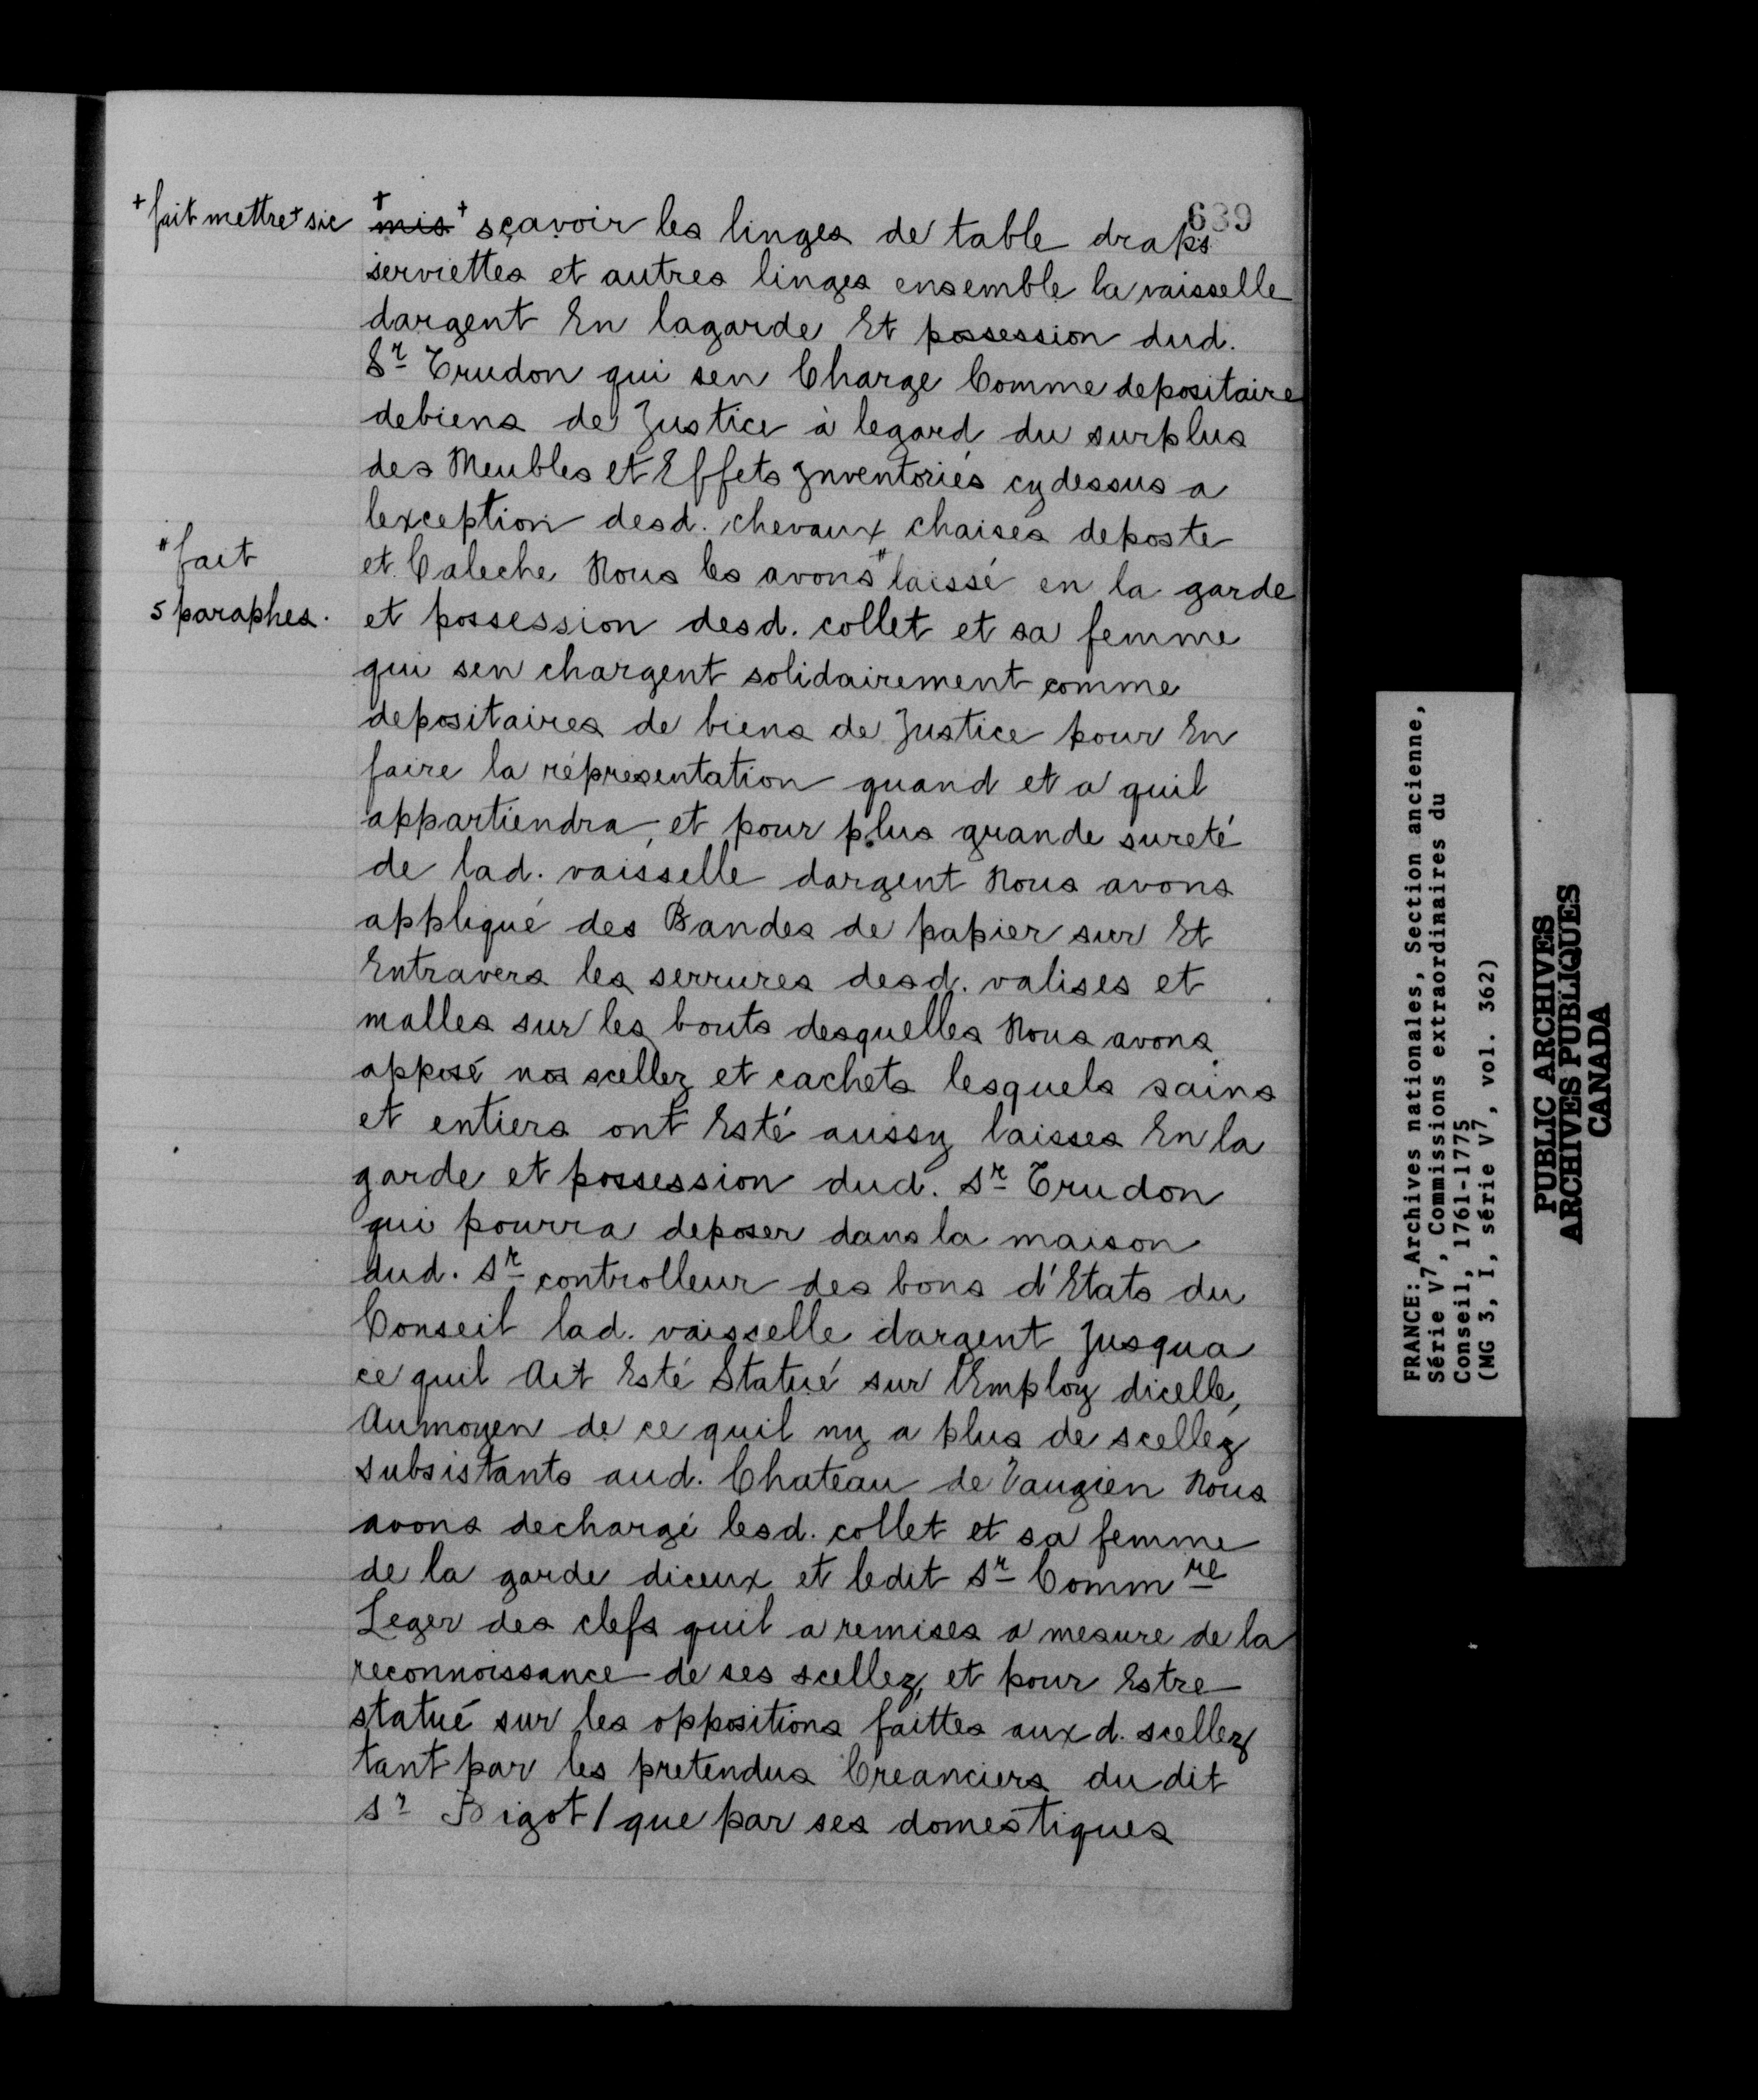 639
+ fait mettre + sic
+ mis + sçavoir les linges de table draps
serviettes et autres linges ensemble la vaisselle
dargent En lagarde Et possession dud.
Sr Trudon qui sen Charge Comme depositaire
debiens de Justice à legard du surplus
des Meubles et Effets Inventoriés cy dessus a
lexception desd. chevaux chaises deposte
et Caleche Nous les avons # laissé en la garde
# fait
5 paraphes.
et possession desd. collet et sa femme
qui sen chargent solidairement comme
depositaires de biens de Justice pour En
faire la répresentation quand et a quil
appartiendra, et pour plus grande sureté
de lad. vaisselle dargent Nous avons
appliqué des Bandes de papier sur Et
Entravers les serrures desd. valises et
malles sur les bouts desquelles Nous avons
apposé nos scellez et cachets lesquels sains
et entiers ont Esté aussy laisses En la
garde et possession dud. Sr Trudon
qui pourra deposer dans la maison
dud. Sr controlleur des bons d'Etats du
Conseil lad. vaisselle dargent Jusqua
ce quil Ait Esté Statué sur l'Employ dicelle,
Aumoyen de ce quil ny a plus de scellez
subsistants aud. Chateau de Vaugien Nous
avons dechargé lesd. collet et sa femme
de la garde diceux et ledit Sr Commre
Leger des clefs quil a remises a mesure de la
reconnoissance de ses scellez, et pour Estre
statué sur les oppositions faittes auxd. scellez
tant par les pretendus Creanciers du dit
Sr Bigot / que par ses domestiques
FRANCE: Archives nationales, Section ancienne,
Série V7, Commissions extraordinaires du
Conseil, 1761-1775
(MG 3, I, série V7, vol. 362)
PUBLIC ARCHIVES
ARCHIVES PUBLIQUES
CANADA